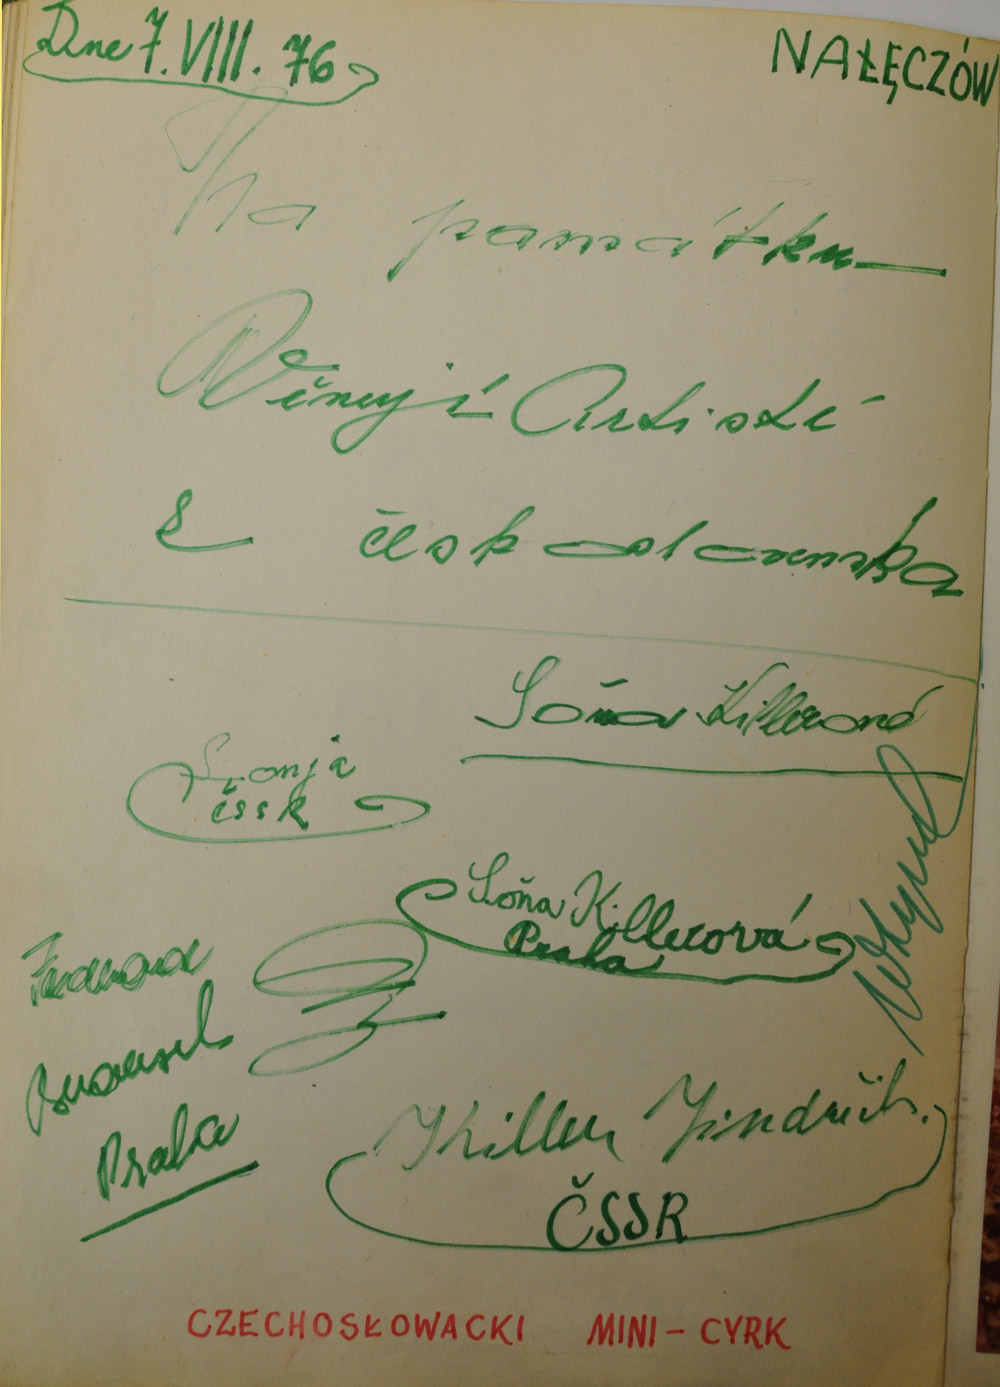 Dne 7. VIII. 76
NAŁĘCZÓW
Na památku
Věnují Artisté
z československa
Soňa Killerová
Sonja
ČSSR
Soňa Killerová
Praha
Praha
Killer Jindřich.
ČSSR
CZECHOSŁOWACKI MINI-CYRK